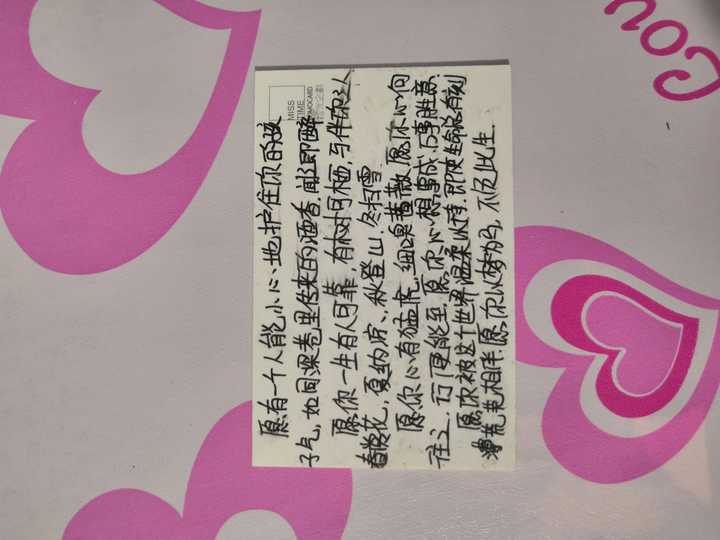 MISS
TIME
愿有一个人能,小心地护住你的孩
子气,如同深巷里传来的酒香,闻即醉
愿你一生有人可靠,有树可栖,与伴你之人
春赏花,夏纳凉,秋登山,冬扫雪.
愿你心有猛虎,细嗅蔷薇,愿你心向
往之,行便能至,愿你心想事成,万事胜意.
愿你被这个世界温柔以待,即使生命总有刻
薄荒芜相伴,愿你以梦为马,不负此生.
Cou